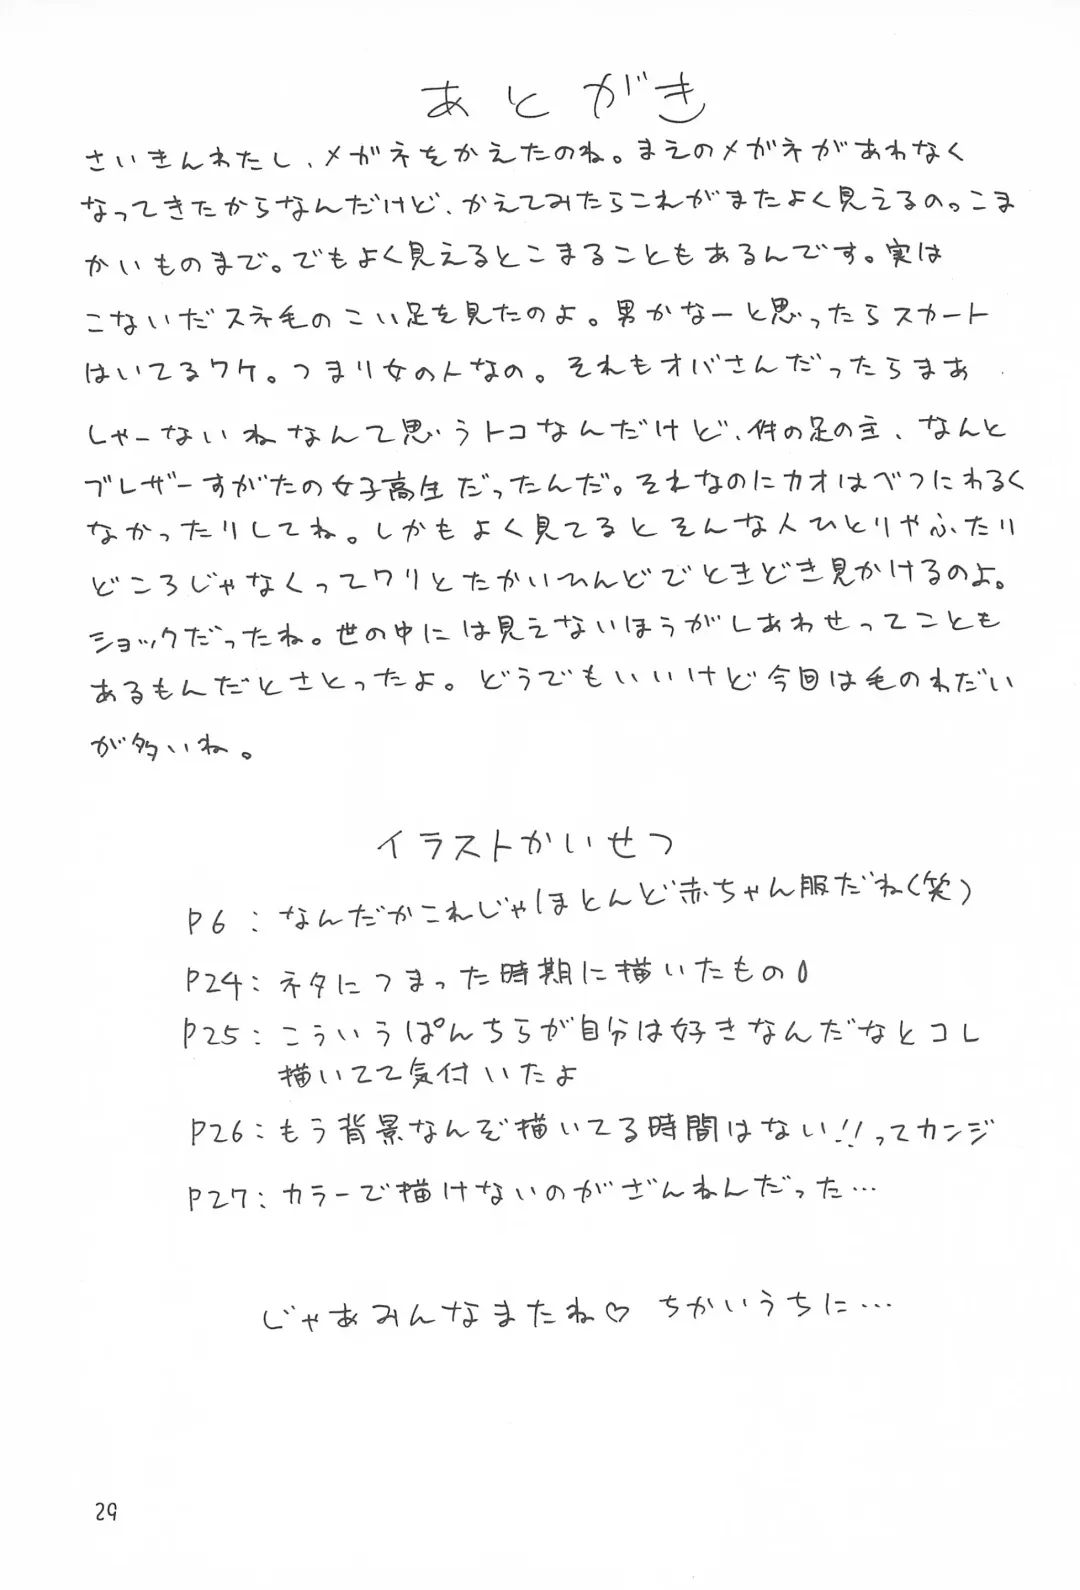 あとがき
さいきんわたし、メガネをかえたのね。まえのメガネがあわなく
なってきたからなんだけど、かえてみたらこれがまたよく見えるの。こま
かいものまで。でもよく見えるとこまることもあるんです。実は
こないだスネ毛のこい足を見たのよ。男かなーと思ったらスカート
はいてるワケ。つまり女の人なの。それもオバさんだったらまあ
しゃーないねなんて思うトコなんだけど、件の足の主、なんと
ブレザーすがたの女子高生だったんだ。それなのにカオはべつにわるく
なかったりしてね。しかもよく見てるとそんな人ひとりやふたり
どころじゃなくってワリとたかいひんどでときどき見かけるのよ。
ショックだったね。世の中には見えないほうがしあわせってことも
あるもんだとさとったよ。どうでもいいけど今回は毛のわだい
が多いね。
イラストかいせつ
P6:なんだかこれじゃほとんど赤ちゃん服だね(笑)
P24:ネタにつまった時期に描いたもの
P25:こういうぱんちらが自分は好きなんだなとコレ
描いてて気付いたよ
P26:もう背景なんぞ描いてる時間はない!!ってカンジ
P27:カラーで描けないのがざんねんだった…
じゃあみんなまたね♡ ちかいうちに…
29